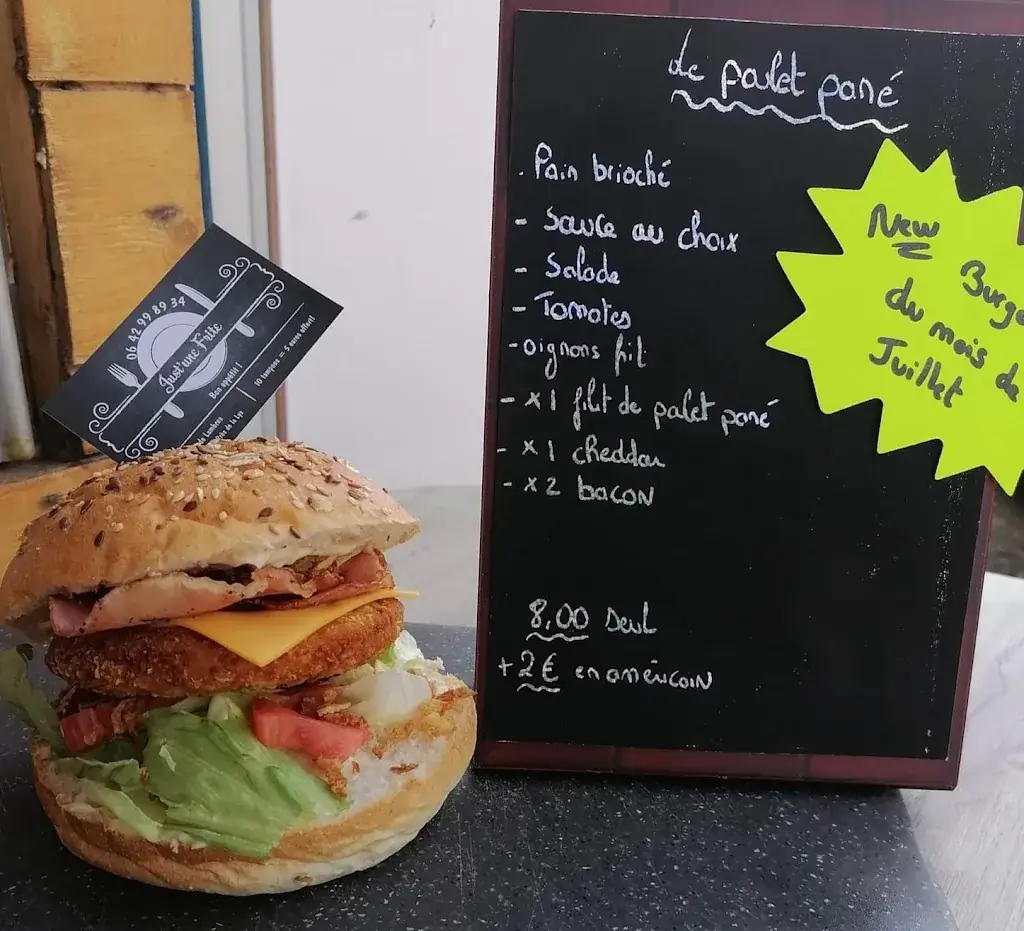 de poulet pané
. Pain brioché
- Sauce au choix
- Salade
- Tomates
- oignons frit
- x1 filet de poulet pané
- x1 cheddar
- x2 bacon
8,00 seul
+ 2€ en américain
New
Burge
du mois de
Juillet
06 42 99 89 34
Just'une Frite
Bon appétit !
10 tampons = 5 euros offert!
de Lombens
de la Lys